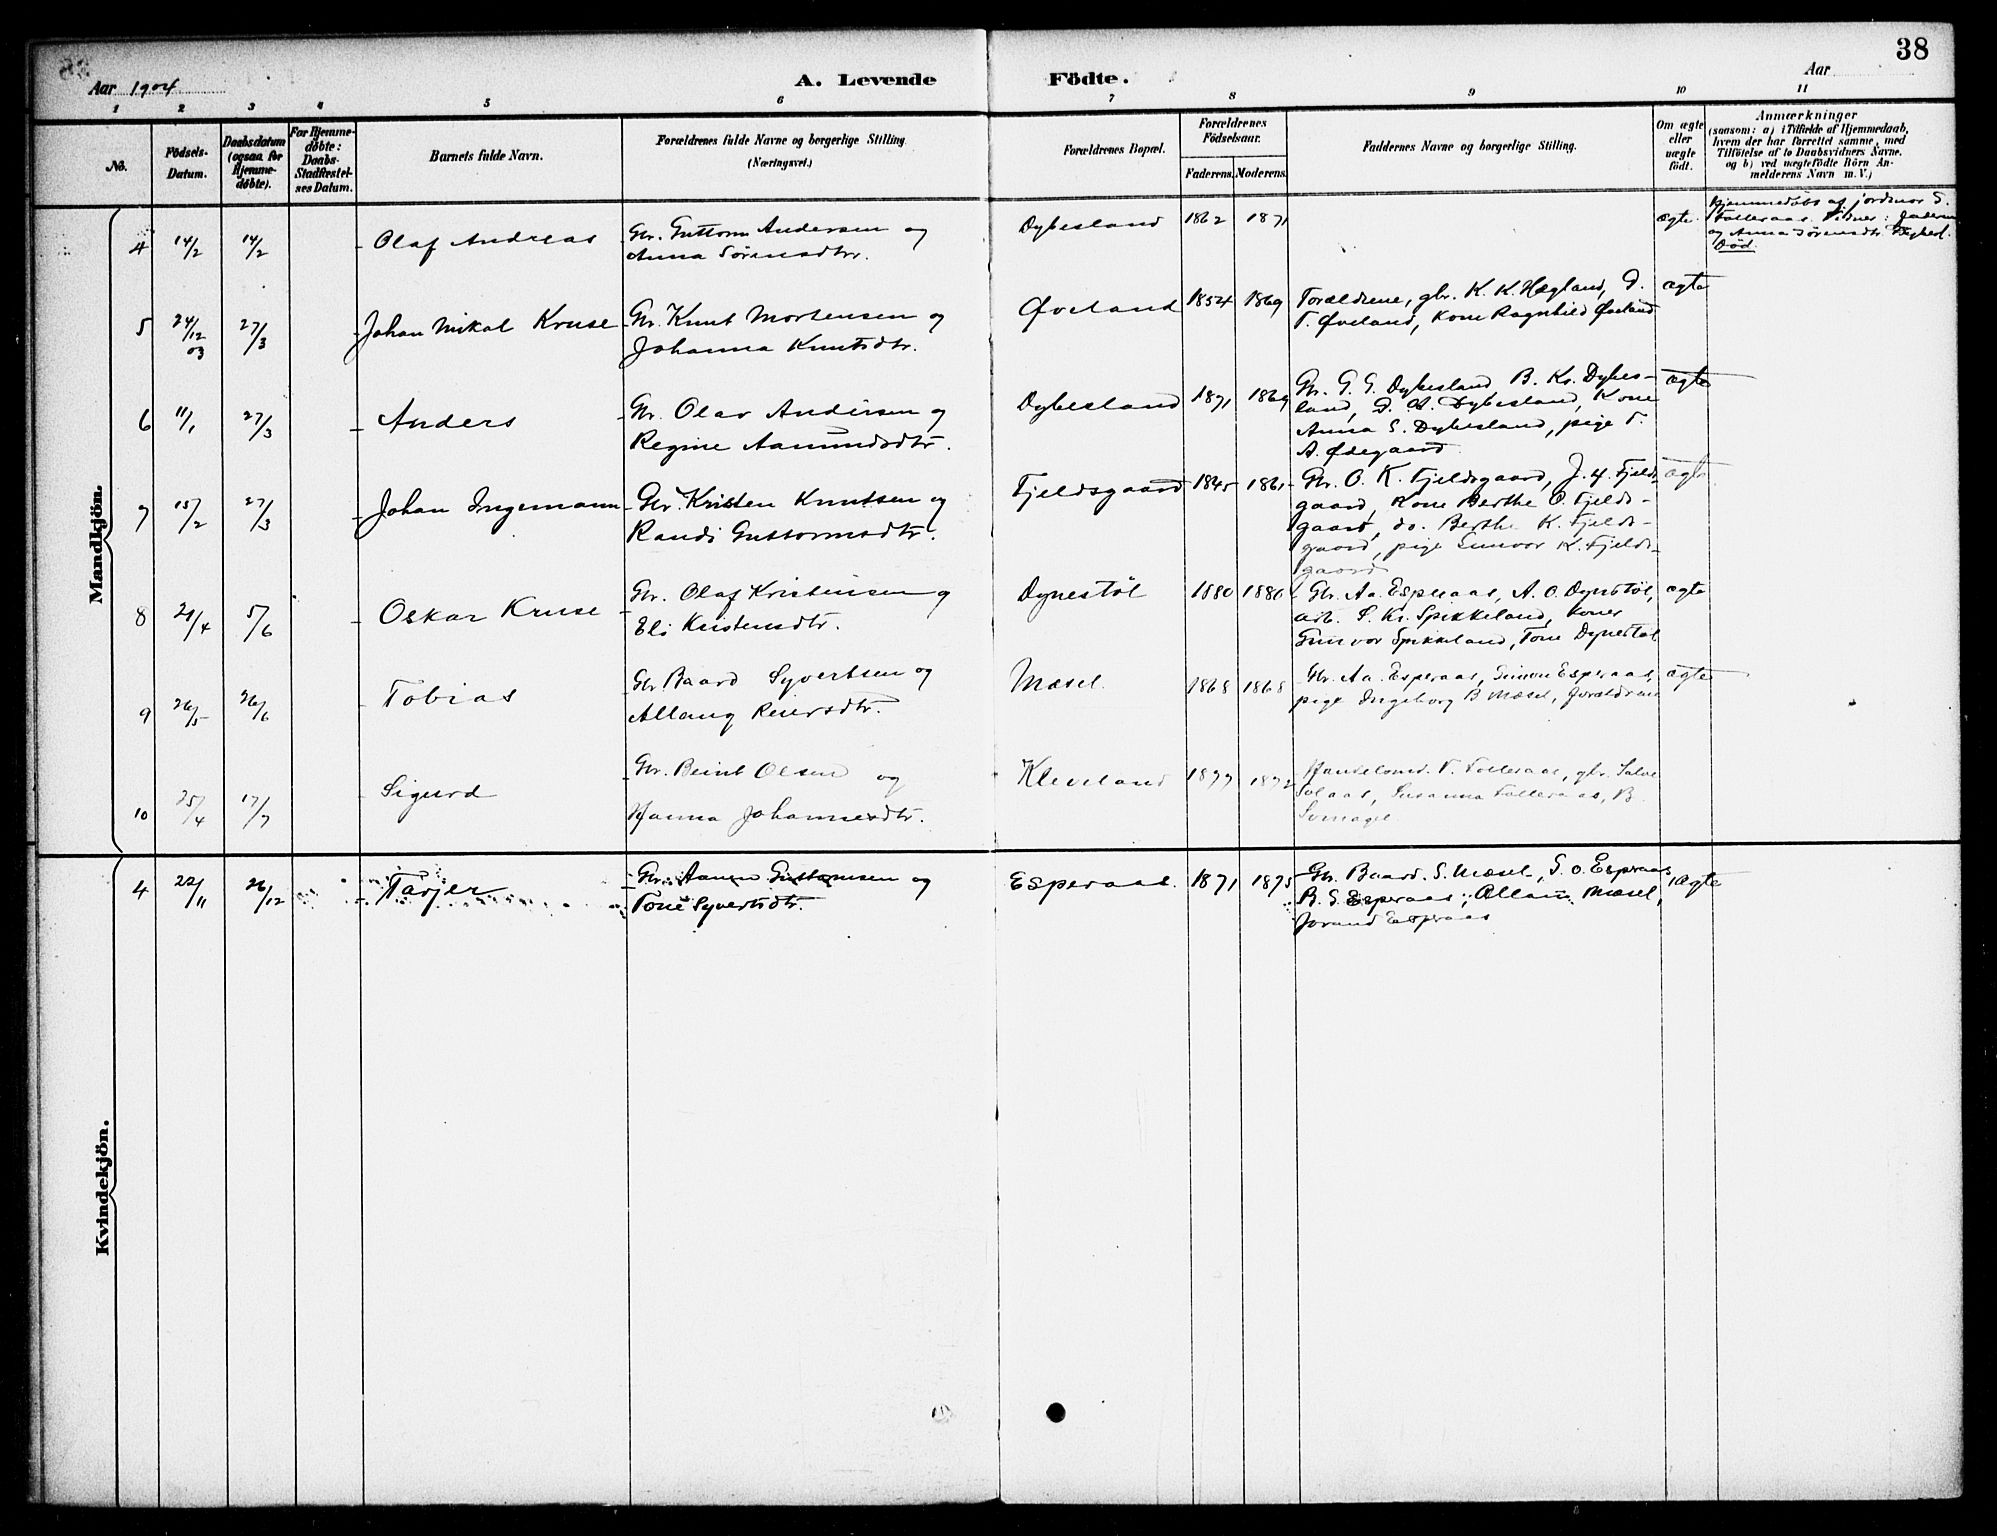 38
Aar 1904
A. Levende Födte.
Aar
1 2 3 4 5 6 7 8 9 10 11
No.
Födsels-Datum.
Daabsdatum (ogsaa for Hjemmedöbte).
For Hjemmedöbte: Daabs-Stadfæstelses Datum.
Barnets fulde Navn.
Forældrenes fulde Navne og borgerlige Stilling
(Næringsvei.)
Forældrenes Bopæl.
Forældrenes Födselsaar.
Faderens. Moderens.
Faddernes Navne og borgerlige Stilling.
Om ægte eller uægte födt.
Anmærkninger
(saasom: a) i Tilfælde af Hjemmedaab,
hvem der har forrettet samme, med
Tilföielse af to Daabsvidners Navne.
og b) ved uægtefödte Börn An-
melderens Navn m. V.)
Mandkjön.
4 14/2 14/2 Olaf Andreas
Gbr. Guttorm Andersen og
Anna Sørensdtr.
Dybesland 1862 1871
ægte.
Hjemmedøbt af jordmor S.
Følleraas. Vidner: Faderen
og Anna Sørensdtr Dybesl.
Død.
5 24/12 03 27/3 Johan Mikal Kruse
Gbr. Knut Mortensen og
Johanna Knutsdtr.
Øveland 1854 1869
Forældrene, gbr. K. K. Hægland, D.
T. Øveland, Kone Ragnhild Øveland
ægte
6 11/1 27/3 Anders
Gbr. Olav Andersen og
Regine Aamundsdtr.
Dybesland 1871 1869
Gbr. G. G. Dybesland B. Kr. Dybes-
land, D. A. Dybesland, Kone
Anna S. Dybesland, pige T.
A. Ødegaard
ægte
7 15/2 27/3 Johan Ingemann
Gbr. Kristen Knutsen og
Randi Guttormsdtr.
Fjeldsgaard 1845 1861
Gbr. O. K. Fjeldsgaard, J. H. Fjelds-
gaard, Kone Berthe O. Fjelds-
gaard, do. Berthe K. Fjelds-
gaard, pige Gunvor K. Fjelds-
gaard
ægte
8 /4 5/6 Oskar Kruse
Gbr. Olaf Kristensen og
Eli Kristensdtr.
Dynestöl 1880 1880
Gbr. Aa. Esperaas, A. O. Dynestöl,
arb. S. Kr. Spikkeland, koner
Gunvor Spikkeland, Tone Dynestöl
ægte
9 26/5 26/6 Tobias
Gbr Baard Syvertsen og
Allaug Reiersdtr.
Mæsel. 1868 1868
Gbr. Aa. Esperaas, Simon Esperaas,
pige Ingeborg B Mæsel, Forældrene
ægte
10 25/4 17/7 Sigurd
Gbr. Beint Olsen og
Hanna Johannesdtr.
Kleveland 1877 1872
Handelsmd. T. Følleraas, gbr. Salve
Solaas, Susanna Følleraas, B.
Kvindekjön.
4 22/11 26/12 Tarjer
Gbr. Aanen Guttormsen og
Tone Syvertsdtr.
Esperaas. 1871 1875
Gbr. Baard S. Mæsel, S. O. Esperaas
B. S. Esperaas, Allaug Mæsel,
Jorand Esperaas
ægte